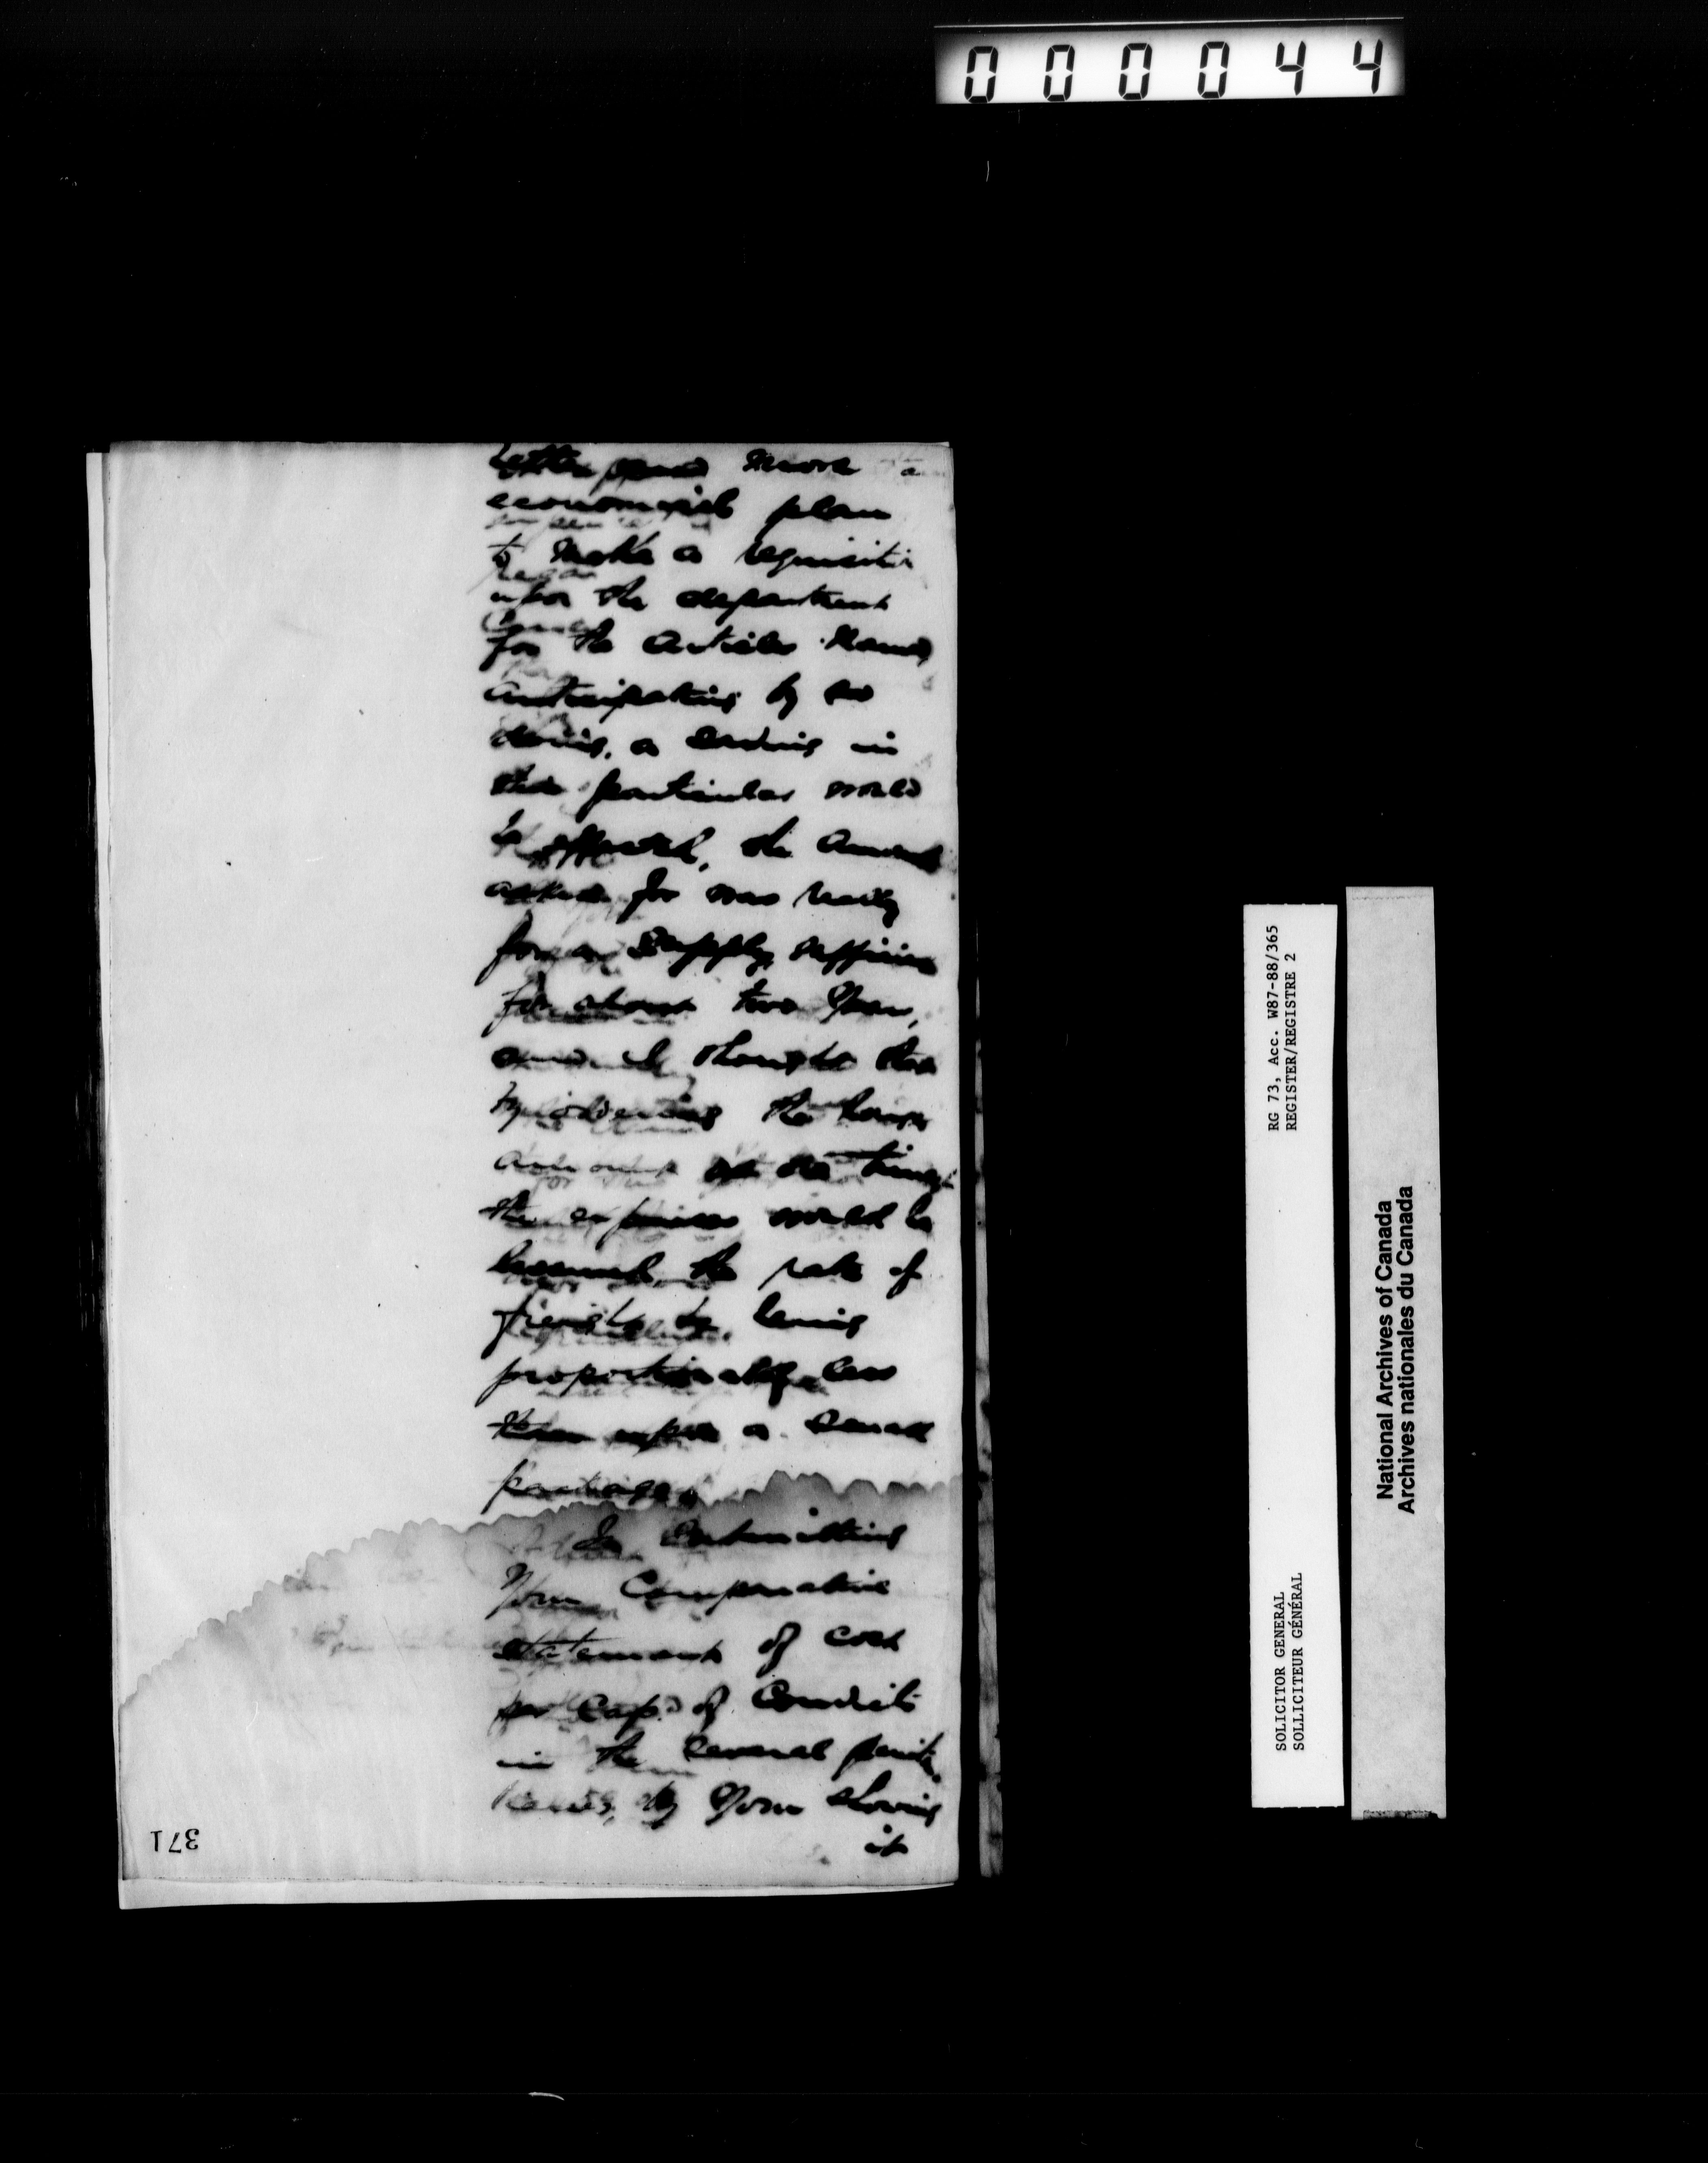 000044
better and more
economical plan
to make a requisiti
upon the department
for the articles named
anticipating by so
doing, a saving in
this particular would
be effected, the amount
asked for was really
for a supply sufficien
for about two years,
and I thought that
by ordering the large
amount at one time
the expenses would be
lessened, the rate of
freight being
proportionally less
than upon a small
package.
In submitting
your Comparative
statement of cost
per Cap. of Convicts
in the several penit
by your showing
it
371
RG 73, Acc. W87-88/365
REGISTER/REGISTRE 2
SOLICITOR GENERAL
SOLLICITEUR GÉNÉRAL
National Archives of Canada
Archives nationales du Canada